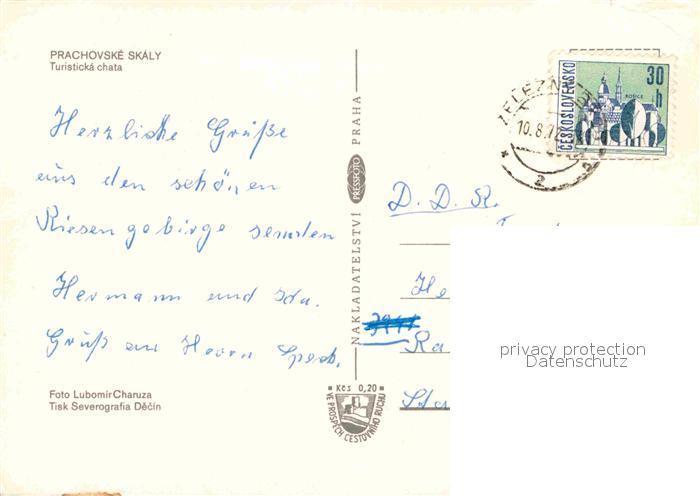 PRACHOVSKÉ SKÁLY
Turistická chata
Herzliche Grüße
aus den schönen
Riesengebirge senden
Hermann und Ida.
Gruß an Herrn Spech.
Foto Lubomír Charuza
Tisk Severografia Děčín
NAKLADATELSTVÍ PRESSFOTO PRAHA
Kčs 0,20
VE PROSPĚCH CESTOVNÍHO RUCHU
ČESKOSLOVENSKO
30 h
KOŠICE
ŽELEZN
10.8.7
2
D. D. R.
He
Ra
privacy protection
Datenschutz